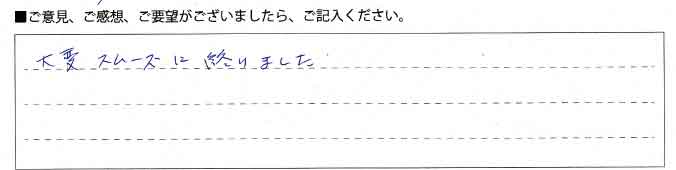 ■ご意見、ご感想、ご要望がございましたら、ご記入ください。
大変スムーズに終りました